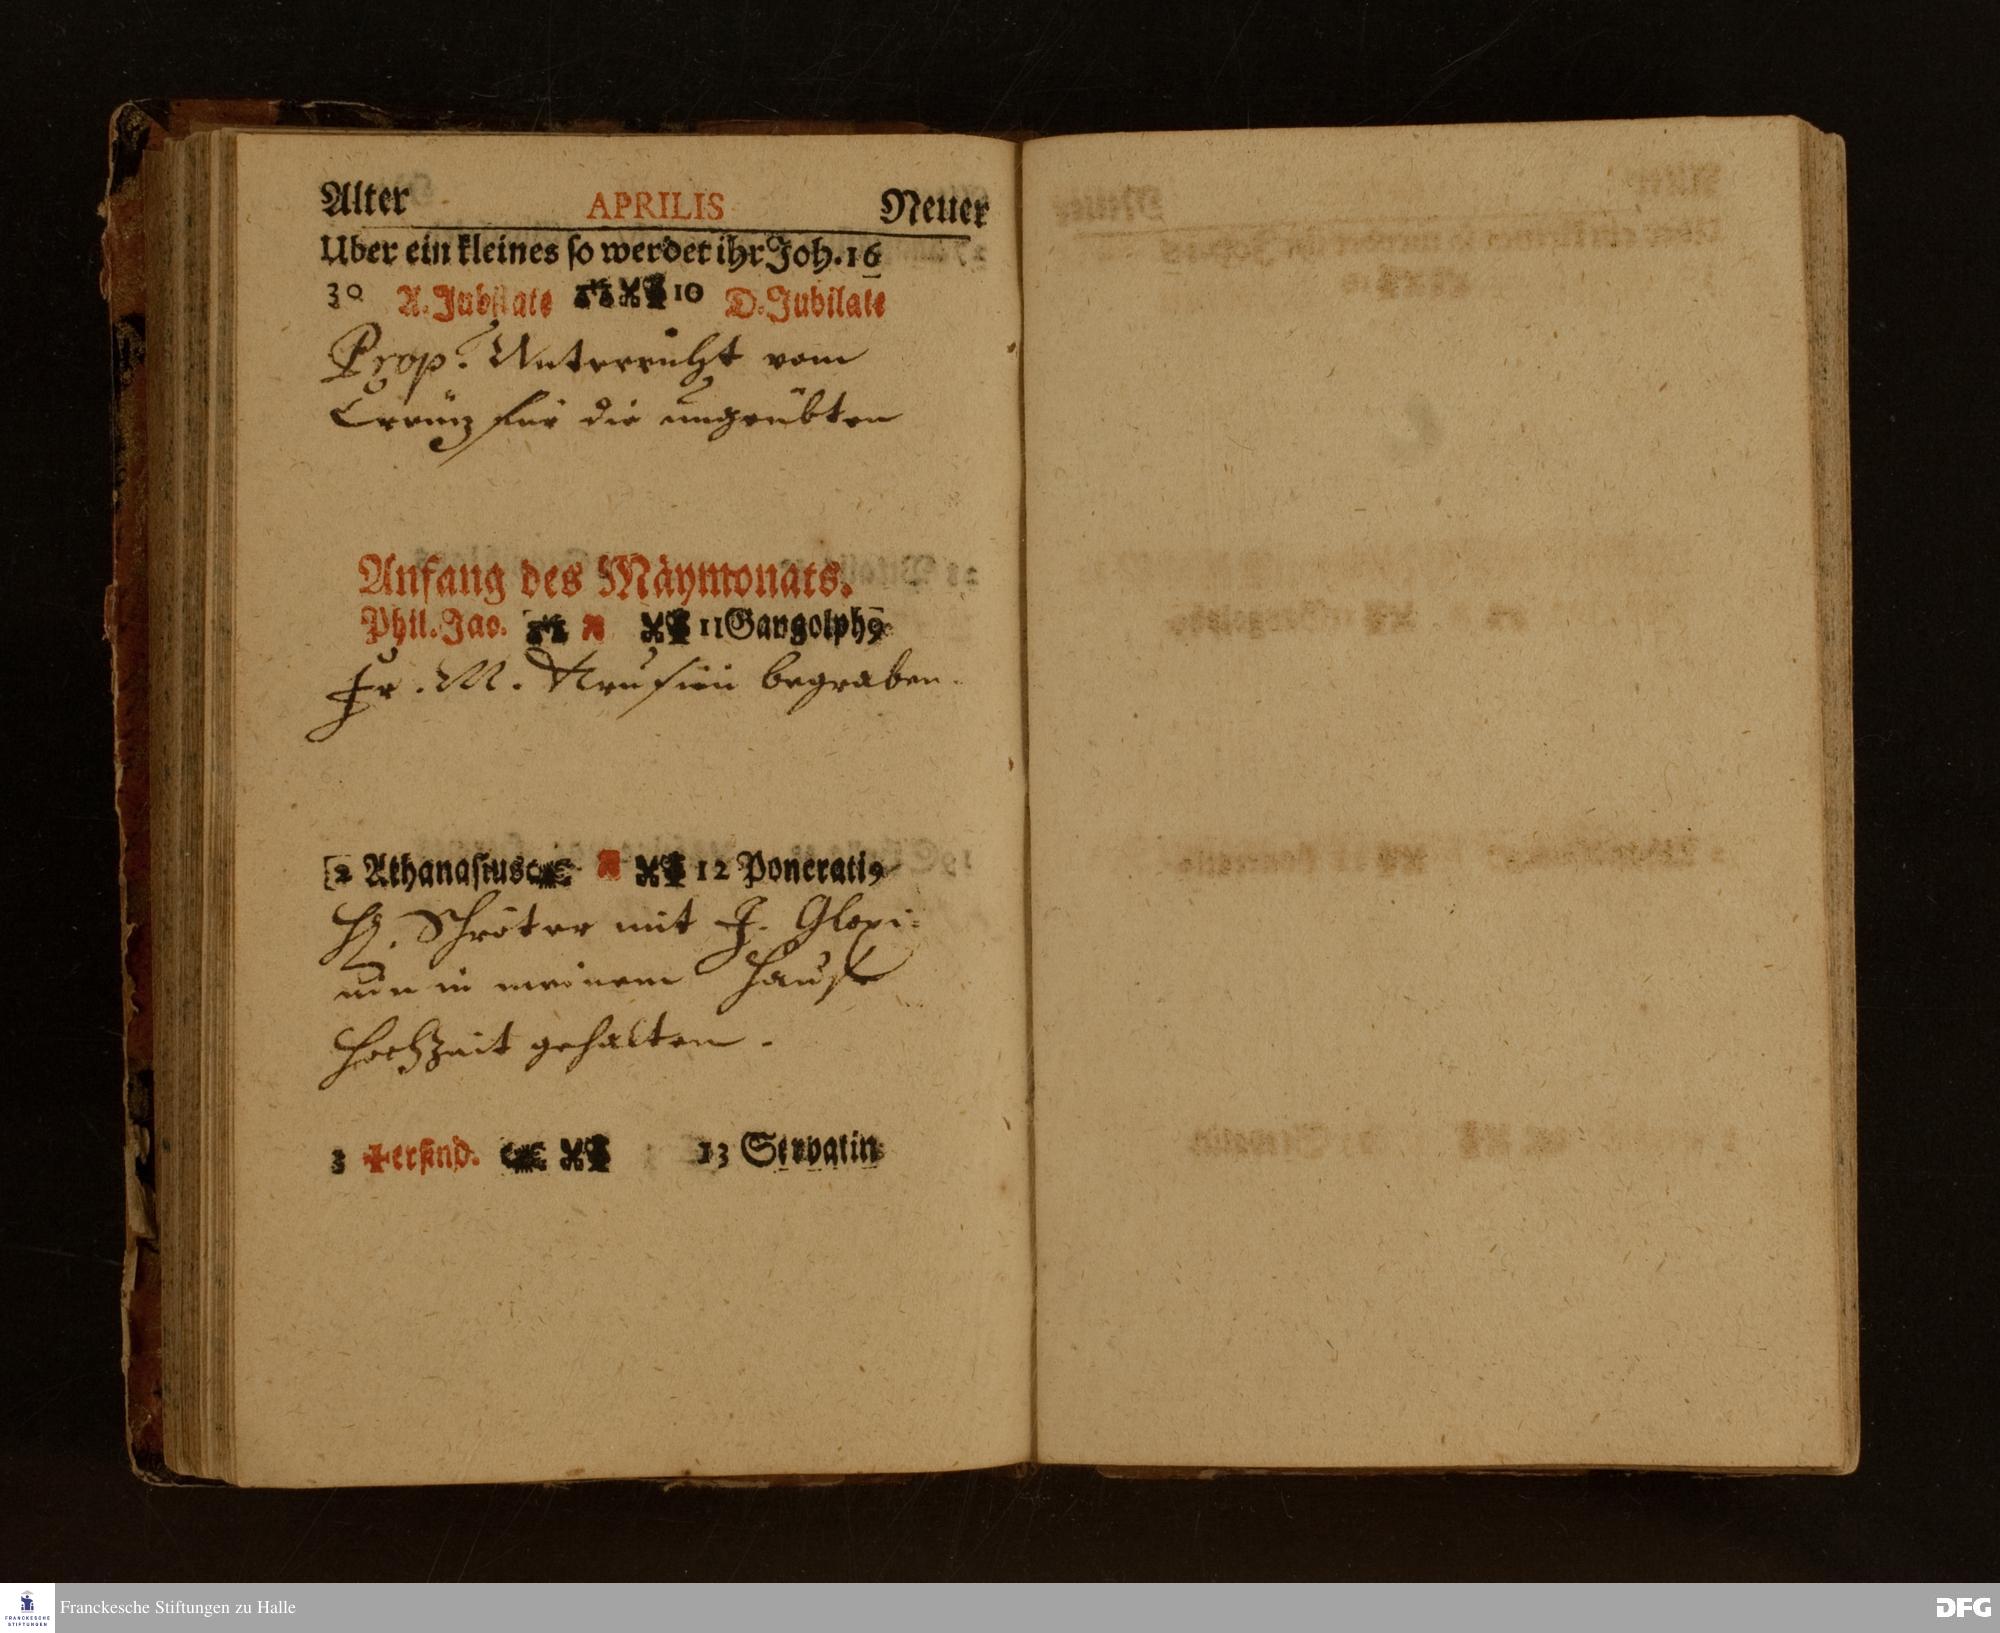 Alter APRILIS Neuer
Uber ein kleines so werdet ihr Joh. 16
30 A. Jubilate 10 D. Jubilate
Prop. Unterricht vom
Creutz für die ungeübten
Anfang des Mäymonats.
Phil. Jac. 11 Gangolph9
Fr. M. begraben.
2 Athanasius 12 Poncrati9
H. Schröter mit J. Gloxi-
nin in meinem Hause
Hochzeit gehalten.
3 ✠ erfind. 13 Servatin
Franckesche Stiftungen zu Halle
FRANCKESCHE
STIFTUNGEN
DFG